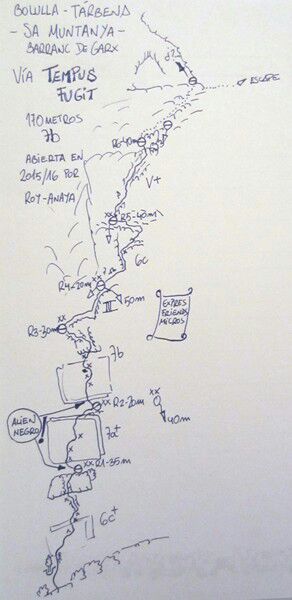 BOLULLA - TÁRBENA
- SA MUNTANYA -
BARRANC DE GARX
VÍA TEMPUS
FUGIT
170 METROS
7b
ABIERTA EN
2015/16 POR
ROY-ANAYA
ESCAPE
R6-40m
V+
R5-40m
6c
R4-20m
III
50m
R3-30m
EXPRES
FRIENDS
MICROS
7b
R2-20m
40m
ALIEN
NEGRO
7a+
R1-35m
6c+